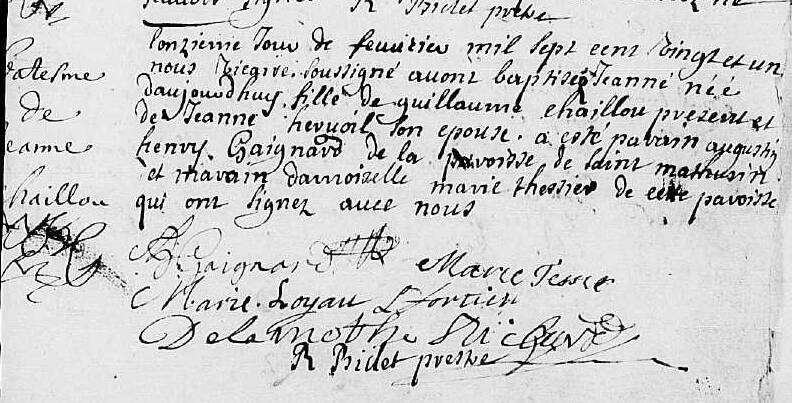 R Bidet prestre
Batesme
de
Jeanne
Chaillou
lonzieme Jour de feuvrier mil sept cent vingt et un
nous vicaire soussigné avont baptisez Jeanne née
daujourdhuy fille de guillaume chaillou present et
de Jeanne hervoil son epouse. a esté parain augustin
henry Gaignard de la paroisse de saint mathurin
et marain damoiselle marie thessier de cette paroisse
qui ont signez avec nous
Gaignard Marie Tessier
Marie. Loyau L fortien
Delamothe
R Bidet prestre